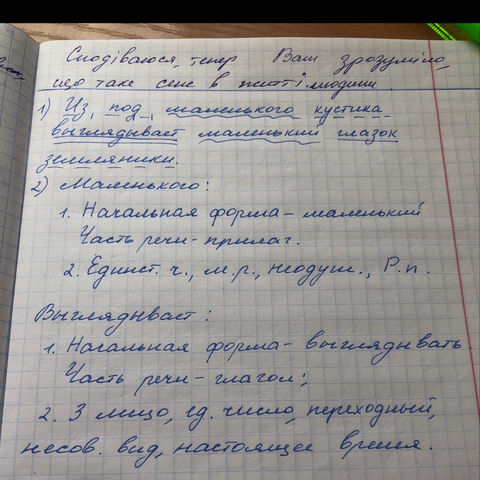 Сподіваюся, тепер Вам зрозуміло,
що таке сенс в житті людини.
1) Из, под, маленького кустика
выглядывает маленький глазок
земляники.
2) Маленького:
1. Начальная форма - маленький
Часть речи - прилаг.
2. Единст. ч., м.р., неодуш., Р.п.
Выглядывает:
1. Начальная форма - выглядывать.
Часть речи - глагол;
2. 3 лицо, ед. число, переходный,
несов. вид, настоящее время.